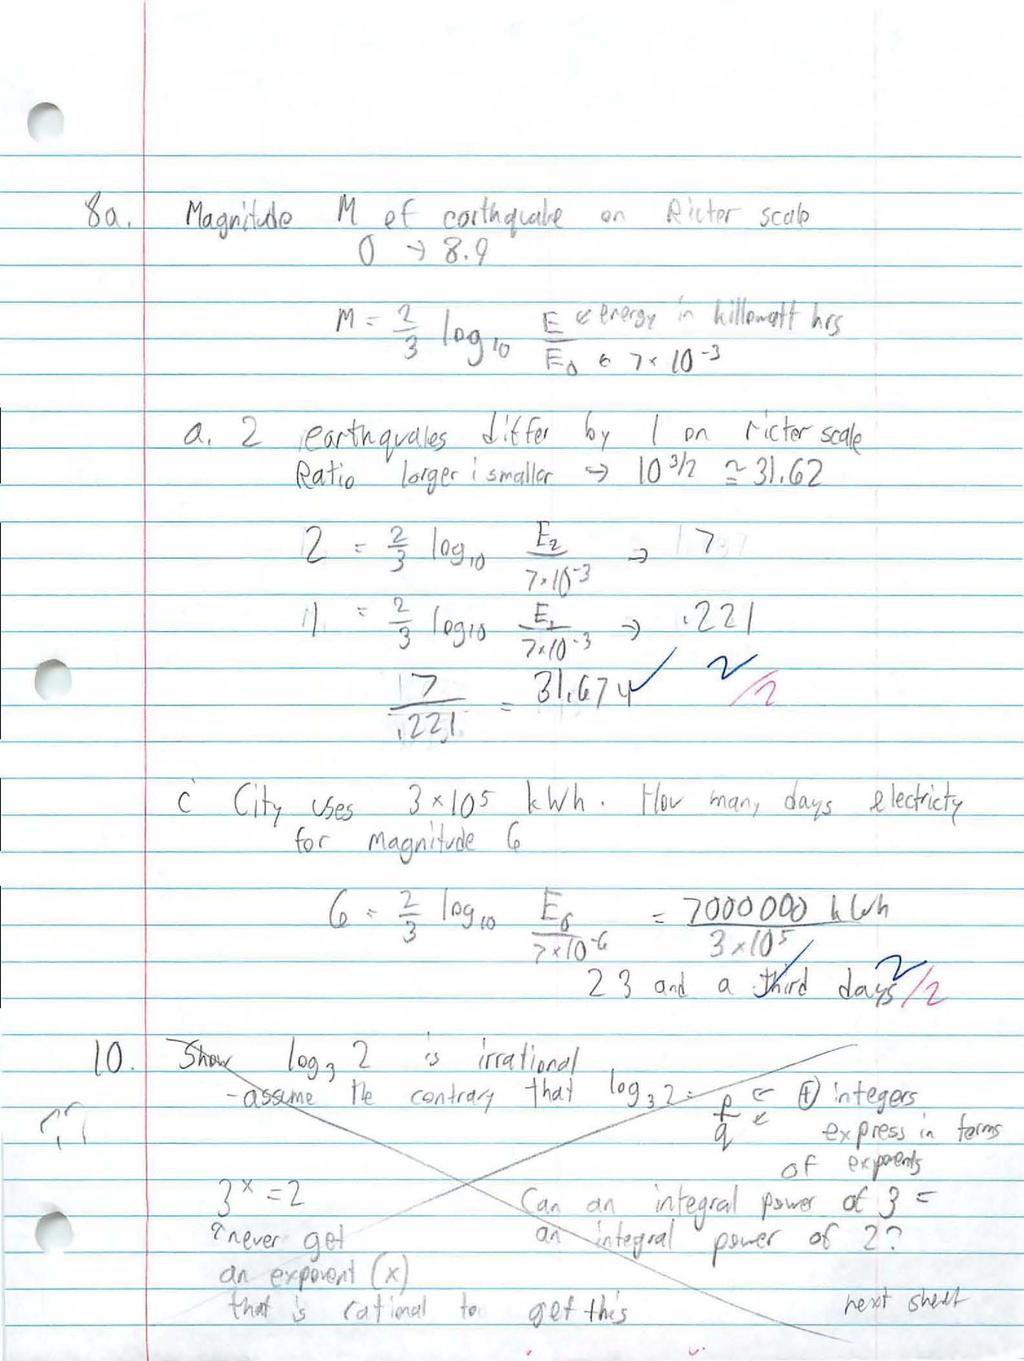 8a. Magnitude M of earthquake on Ricter scale
0 → 8.9
M = 2/3 log10 E/E0 ← energy in killowatt hrs
← 7 × 10^-3
a. 2 earthquakes differ by 1 on ricter scale
Ratio larger : smaller → 10^3/2 ≅ 31.62
2 = 2/3 log10 E2/7×10^-3 → 7
1 = 2/3 log10 E1/7×10^-3 → .221
7/.221 = 31.674 ✓ 2/2
c City uses 3×10^5 kWh. How many days electricty
for magnitude 6
6 = 2/3 log10 E6/7×10^-6 = 7000000 kWh/3×10^5
23 and a third days 2/2
10. Show log3 2 is irrational
- assume the contrary that log3 2 = p/q ← (+) integers
express in terms
of exponents
3^x = 2 Can an integral power of 3 =
↑ never get an integral power of 2?
an exponent (x)
that is rational to get this next sheet